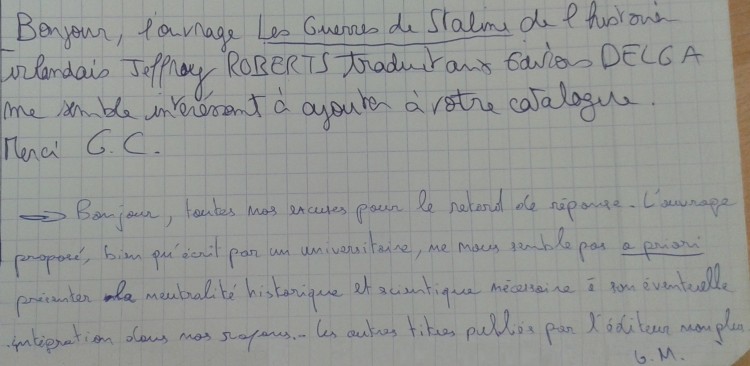 Bonjour, l'ouvrage Les Guerres de Staline de l'historien
irlandais Jeffray ROBERTS traduit aux Editions DELGA
me semble intéressant à ajouter à votre catalogue.
Merci G.C.
→ Bonjour, toutes nos excuses pour le retard de réponse. L'ouvrage
proposé, bien qu'écrit par un universitaire, ne nous semble pas a priori
présenter la neutralité historique et scientifique nécessaire à son éventuelle
intégration dans nos rayons. - Les autres titres publiés par l'éditeur non plus
G.M.